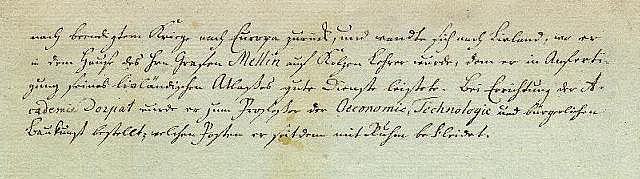 nach beendigtem Kriege nach Europa zurück, und wandte sich nach Livland, wo er
in dem Hause des Hrn Grafen Mellin auf Kolzen Lehrer wurde, dem er in Anferti-
gung seines livländischen Atlasses gute Dienste leistete. Bei Errichtung der A-
cademie Dorpat wird er zum Professor der Oeconomie, Technologie und bürgerlichen
Baukunst bestellt, welchen Posten er seitdem mit Ruhm bekleidet.